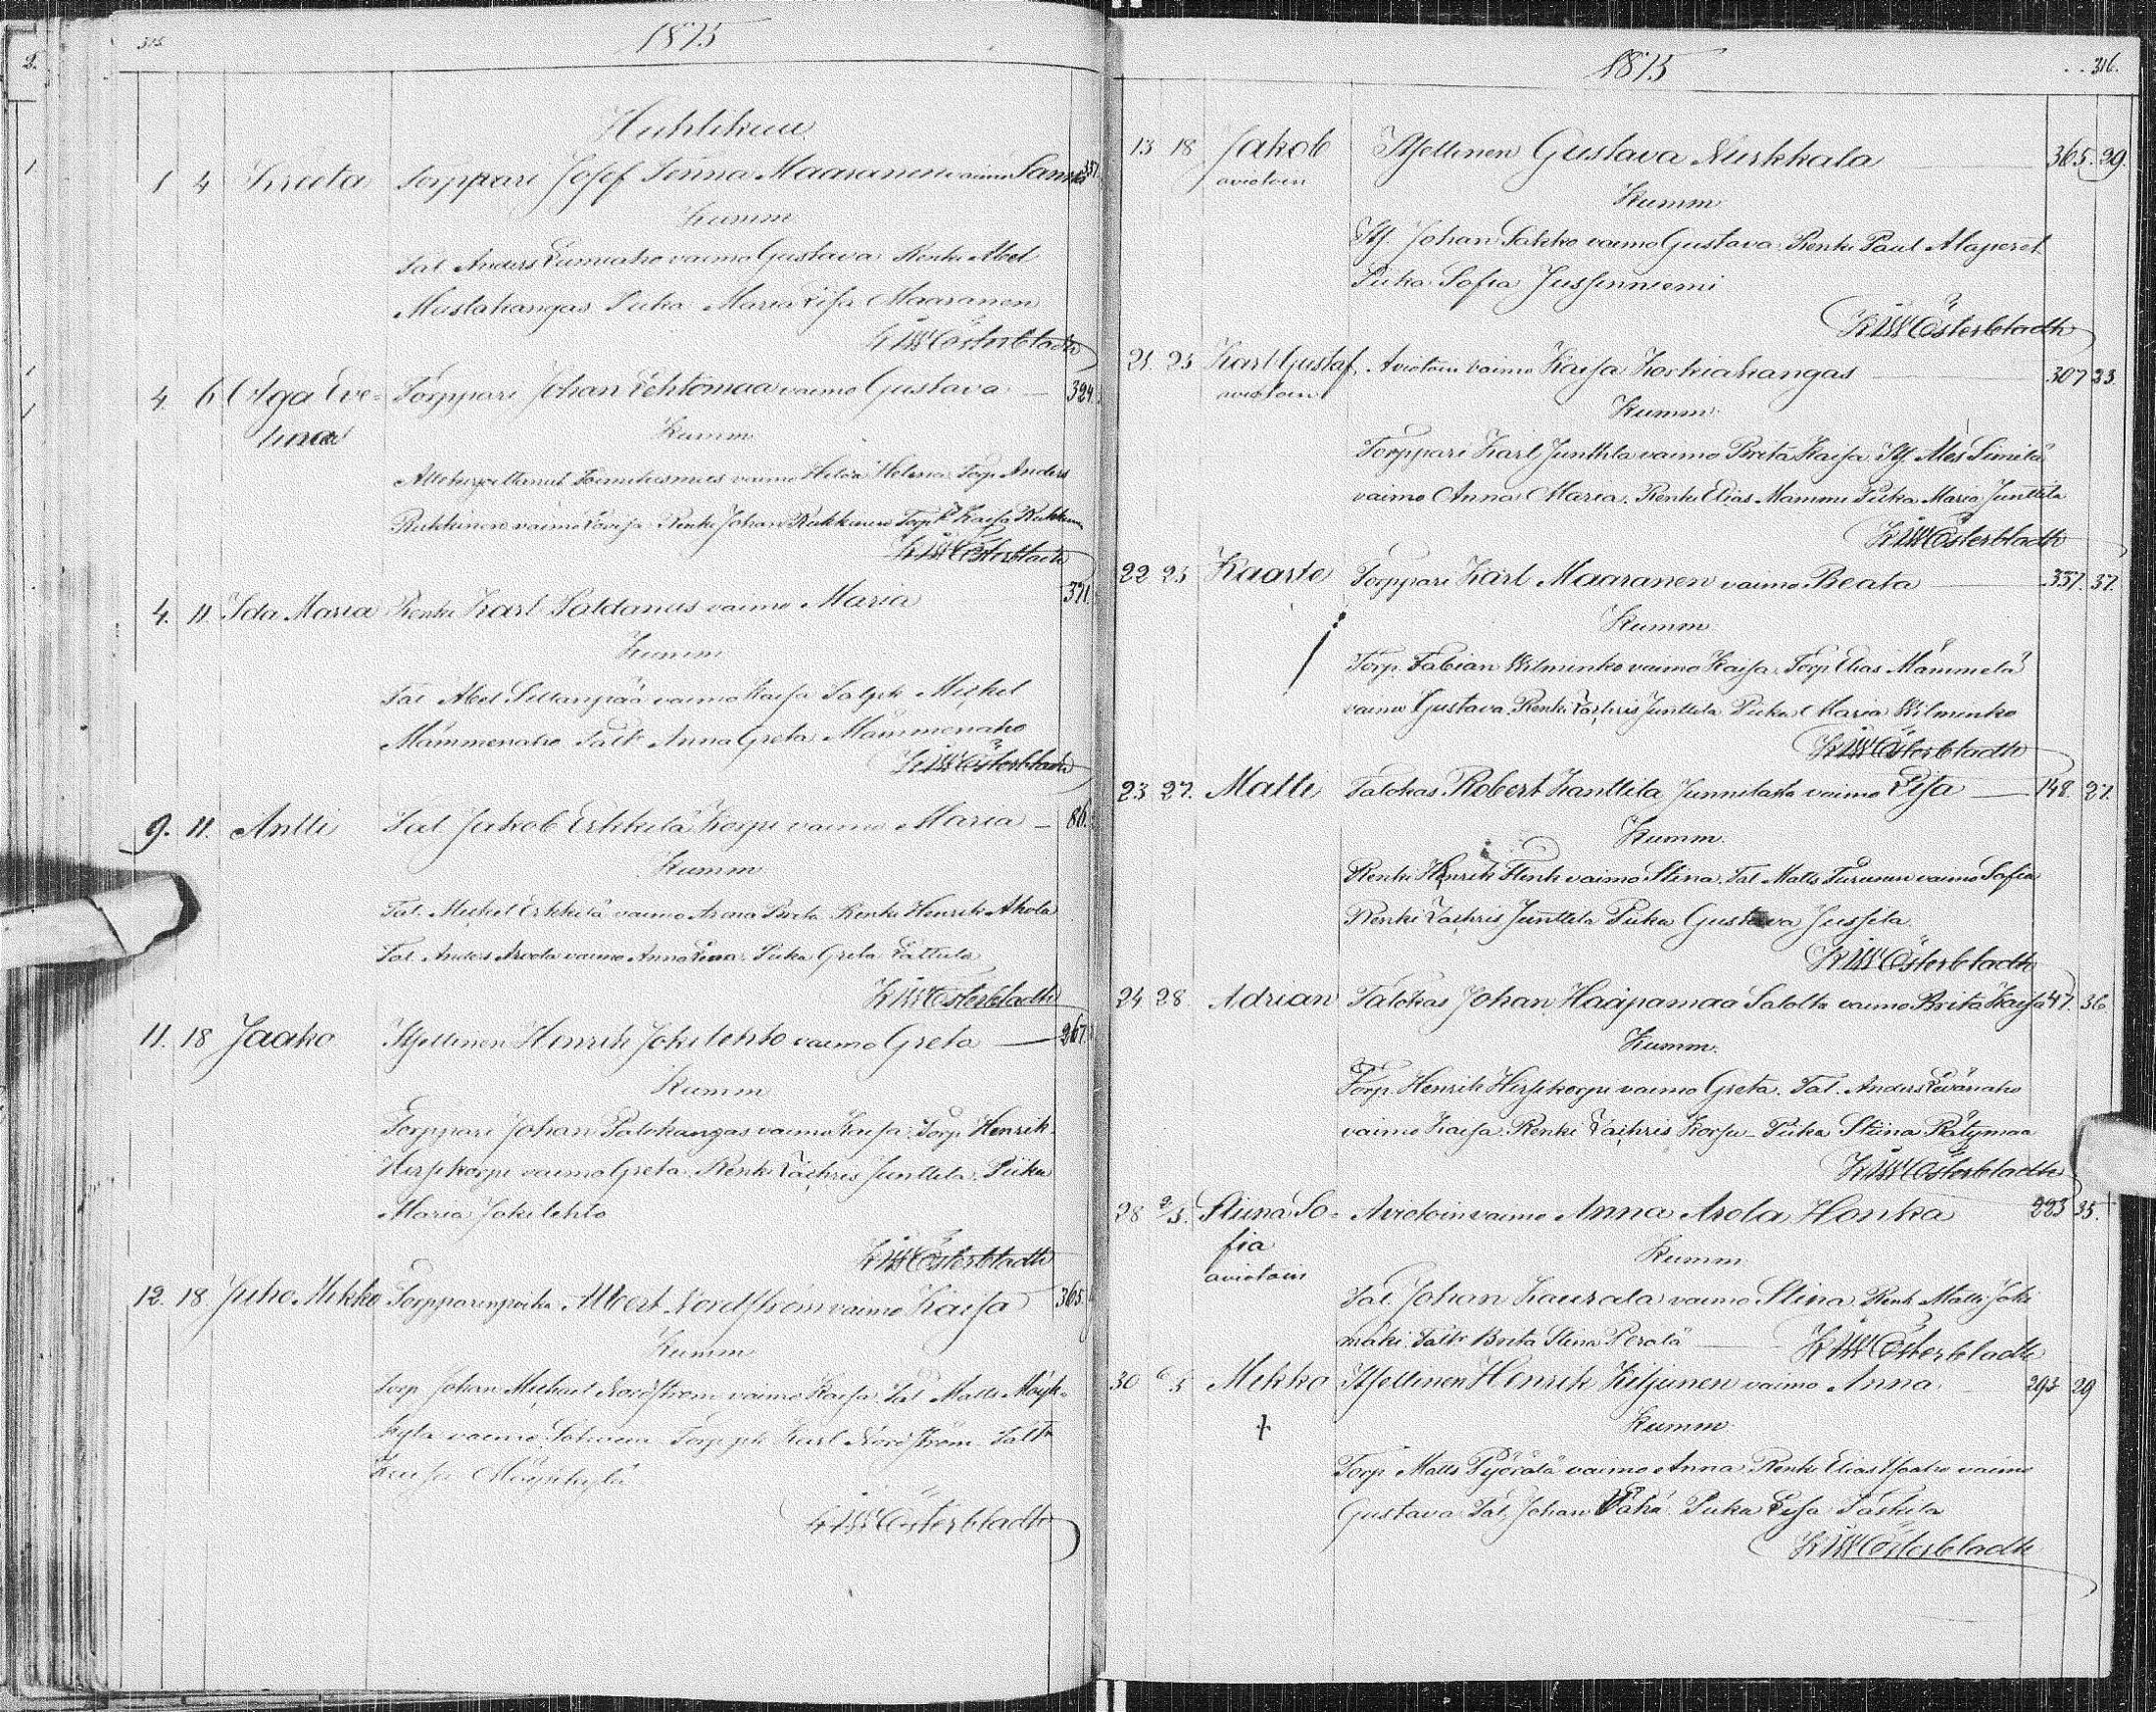 315.
1875
Huhtikuu
1 4 Kreeta Torppari Josef Jenna Maaranen vaimo Sanna 357.
Kumm
Tal. Anders Lumiaho vaimo Gustava Renki Abel
Mustakangas Piika Maria Lisa Maaranen
KWÖsterbladh
4. 6 Olga Eve- Torppari Johan Lehtomaa vaimo Gustava — 324.
lina Kumm
vaimo Hilda Helena Torp. Anders
Rukkinen vaimo Lovisa Renki Johan Rukkinen Torp. Kaisa
KWÖsterbladh
4. 11. Ida Maria Renki Karl Saldanas vaimo Maria 371.
Kumm
Tal Abel Sillanpää vaimo Kaisa Mickel
Mämmenaho Anna Greta Mämmenaho
KWÖsterbladh
9. 11. Antti Tal Jakob Erkkilä Korpi vaimo Maria — 86.
Kumm
Tal. Mickel Erkkilä vaimo Anna Brita Renki Henrik Ahola
Tal. Anders Arola vaimo Anna Liisa. Piika Greta Lattula
KWÖsterbladh
11. 18 Jaako Itsellinen Henrik Jokilehto vaimo Greta — 267.
Kumm
Torppari Johan Palokangas vaimo Kaisa. Torp. Henrik
Hirsikorpi vaimo Greta. Renki Zachris Junttila. Piika
Maria Jokilehto
KWÖsterbladh
12. 18. Juho Mikko Torpparinpoika Albert Nordström vaimo Kaisa 365.
Kumm
Torp Johan Michael Nordström vaimo Kaisa. Tal Matti Möyk-
kylä vaimo Torp. pk Karl Nordström. Talt
Kaisa Möykkylä
KWÖsterbladh
1875
316.
13 18 Jakob Itsellinen Gustava Nurkkala — 365. 29.
aviotoin Kumm
Its. Johan Sakko vaimo Gustava Renki Paul Alaperet
Piika Sofia Jussinniemi
KWÖsterbladh
21. 25 Karl Gustaf, Aviotoin vaimo Kaisa Koskiahangas — 307 23
aviotoin Kumm
Torppari Karl Junttila vaimo Brita Kaisa Its. Ales Simila
vaimo Anna Maria. Renki Elias Mammi Piika Maria Junttila
KWÖsterbladh
22 25 Kaarle Torppari Karl Maaranen vaimo Beata — 357. 37.
Kumm
Torp. Fabian Wilminko vaimo Kaisa. Torp. Elias Mämmelä
vaimo Gustava. Renki Zachris Junttila Piika Maria Wilminko
KWÖsterbladh
23 27. Matti Talokas Robert Kanttila Junnilasta vaimo Lisa — 148 27.
Kumm.
Renki Henrik Flink vaimo Stina. Tal Matts Turunen vaimo Sofia
Renki Zachris Junttila Piika Gustava Jussila.
KWÖsterbladh
24 28 Adrian Talokas Johan Haapamaa vaimo Brita Kaisa 47. 36
Kumm.
Torp. Henrik Hirsikorpi vaimo Greta. Tal. Anders Leväniaho
vaimo Kaisa. Renki Zachris Korsu Piika Stiina Rätymaa
KWÖsterbladh
28 2/5. Stiina So- Aviotoin vaimo Anna Arola Honka 223 35.
fia Kumm
aviotoin
Tal. Johan Kaurala vaimo Stina Renk Matti Joki
mäki. Talt Brita Stina Perälä — KWÖsterbladh
30 6/5 Mikko Itsellinen Henrik Kiljunen vaimo Anna 293 29
+ Kumm
Torp. Matts Pyörälä vaimo Anna Renki Elias vaimo
Gustava Tal. Johan Vähä Piika Lisa
KWÖsterbladh